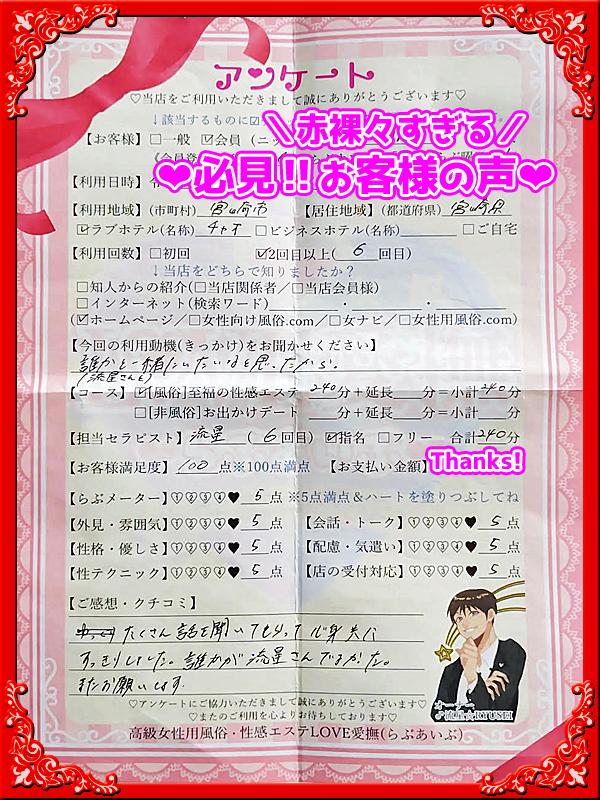 アンケート
♡当店をご利用いただきまして誠にありがとうございます♡
↓該当するものに☑
＼赤裸々すぎる／
【お客様】□一般 ☑会員 (ニッ
❤必見!!お客様の声❤
【利用日時】
【利用地域】(市町村) 宮崎市 【居住地域】(都道府県) 宮崎県
☑ラブホテル(名称) チャオ □ビジネスホテル(名称) □ご自宅
【利用回数】□初回 ☑2回目以上( 6 回目)
↓当店をどちらで知りましたか？
□知人からの紹介(□当店関係者／□当店会員様)
□インターネット(検索ワード) ・ ・
(☑ホームページ／□女性向け風俗.com／□女ナビ／□女性用風俗.com)
【今回の利用動機(きっかけ)をお聞かせください】
誰かと一緒にいたいなと思ったから。
(流星さんと)
【コース】☑[風俗]至福の性感エステ 240分＋延長 分＝小計240分
□[非風俗]お出かけデート 分＋延長 分＝小計 分
【担当セラピスト】流星 ( 6回目) ☑指名 □フリー 合計240分
【お客様満足度】100点※100点満点 【お支払い金額】
Thanks!
【らぶメーター】①②③④♥ 5点 ※5点満点＆ハートを塗りつぶしてね
【外見・雰囲気】①②③④♥ 5点 【会話・トーク】①②③④♥ 5点
【性格・優しさ】①②③④♥ 5点 【配慮・気遣い】①②③④♥ 5点
【性テクニック】①②③④♥ 5点 【店の受付対応】①②③④♥ 5点
【ご感想・クチコミ】
たくさん話を聞いてもらって心身共に
すっきりしました。誰かが流星さんでよかった。
またお願いします。
オーナー
♡アンケートにご協力いただきまして誠にありがとうございます♡
♡またのご利用を心よりお待ちしております♡
高級女性用風俗・性感エステLOVE愛撫(らぶあいぶ)